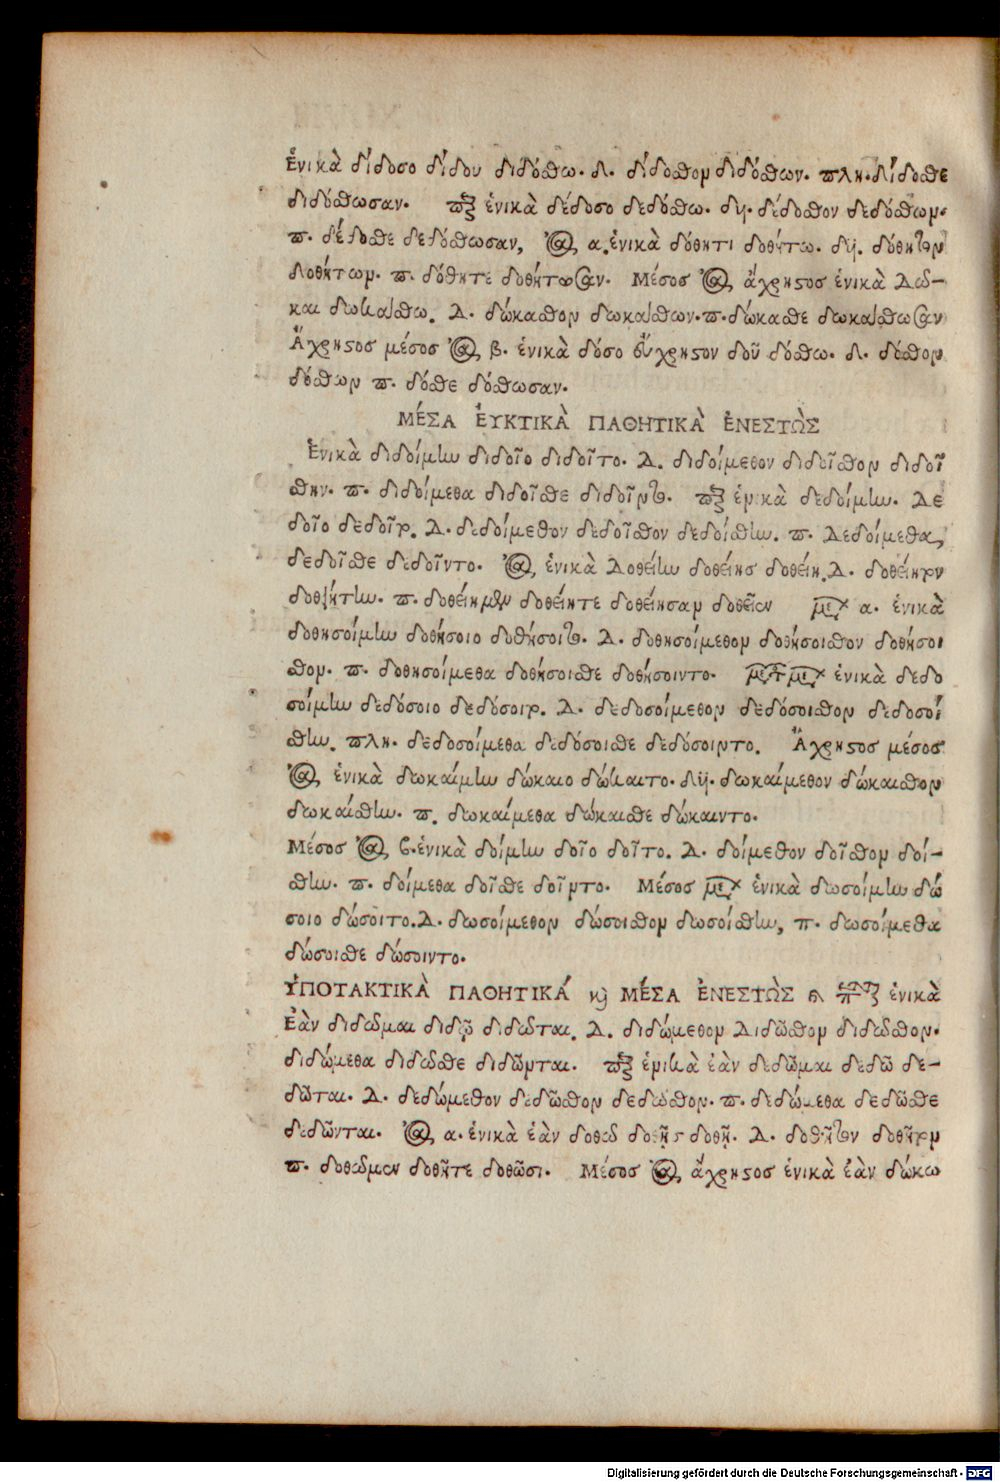 Ἑνικὰ δίδοσο δίδου διδόσθω. Δ. δίδοσθον διδόσθων. πλη. δίδοσθε
διδόσθωσαν. πξ ἑνικὰ δέδοσο δεδόσθω. δυ. δέδοσθον δεδόσθων.
π. δέδοσθε δεδόσθωσαν, α. ἑνικὰ δόθητι δοθήτω. δυ. δόθητον
δοθήτων. π. δόθητε δοθήτωσαν. Μέσος ἄχρηστος ἑνικὰ Δῶ-
και δωκάσθω. Δ. δώκασθον δωκάσθων. π. δώκασθε δωκάσθωσαν
Ἄχρηστος μέσος β. ἑνικὰ δόσο εὔχρηστον δοῦ δόσθω. Δ. δόσθον
δόσθων π. δόσθε δόσθωσαν.
ΜΕΣΑ ΕΥΚΤΙΚᾺ ΠΑΘΗΤΙΚᾺ ἘΝΕΣΤῺΣ
Ἑνικὰ διδοίμην διδοῖο διδοῖτο. Δ. διδοίμεθον διδοῖσθον διδοί
σθην. π. διδοίμεθα διδοῖσθε διδοῖντο. πξ ἑνικὰ δεδοίμην. Δε
δοῖο δεδοῖτο. Δ. δεδοίμεθον δεδοῖσθον δεδοίσθην. π. Δεδοίμεθα,
δεδοῖσθε δεδοῖντο. ἑνικὰ Δοθείην δοθείης δοθείη. Δ. δοθείητον
δοθειήτην. π. δοθείημεν δοθείητε δοθείησαν δοθεῖεν α. ἑνικὰ
δοθησοίμην δοθήσοιο δοθήσοιτο. Δ. δοθησοίμεθον δοθήσοισθον δοθήσοι
σθον. π. δοθησοίμεθα δοθήσοισθε δοθήσοιντο. ἑνικὰ δεδο
σοίμην δεδόσοιο δεδόσοιτο. Δ. δεδοσοίμεθον δεδόσοισθον δεδοσοί
σθην. πλη. δεδοσοίμεθα δεδόσοισθε δεδόσοιντο. Ἄχρηστος μέσος
ἑνικὰ δωκαίμην δώκαιο δώκαιτο. δυ. δωκαίμεθον δώκαισθον
δωκαίσθην. π. δωκαίμεθα δώκαισθε δώκαιντο.
Μέσος β. ἑνικὰ δοίμην δοῖο δοῖτο. Δ. δοίμεθον δοῖσθον δοί-
σθην. π. δοίμεθα δοῖσθε δοῖντο. Μέσος ἑνικὰ δωσοίμην δώ
σοιο δώσοιτο. Δ. δωσοίμεθον δώσοισθον δωσοίσθην, π. δωσοίμεθα
δώσοισθε δώσοιντο.
ὙΠΟΤΑΚΤΙΚᾺ ΠΑΘΗΤΙΚΆ καὶ ΜΈΣΑ ἘΝΕΣΤῺΣ ἑνικὰ
Ἐὰν διδῶμαι διδῷ διδῶται. Δ. διδώμεθον Διδῶσθον διδῶσθον.
διδώμεθα διδῶσθε διδῶνται. πξ ἑνικὰ ἐὰν δεδῶμαι δεδῶ δε-
δῶται. Δ. δεδώμεθον δεδῶσθον δεδῶσθον. π. δεδώμεθα δεδῶσθε
δεδῶνται. α. ἑνικὰ ἐὰν δοθῶ δοθῇς δοθῇ. Δ. δοθῆτον δοθῆτον
π. δοθῶμεν δοθῆτε δοθῶσι. Μέσος ἄχρηστος ἑνικὰ ἐὰν δώκω
Digitalisierung gefördert durch die Deutsche Forschungsgemeinschaft - DFG